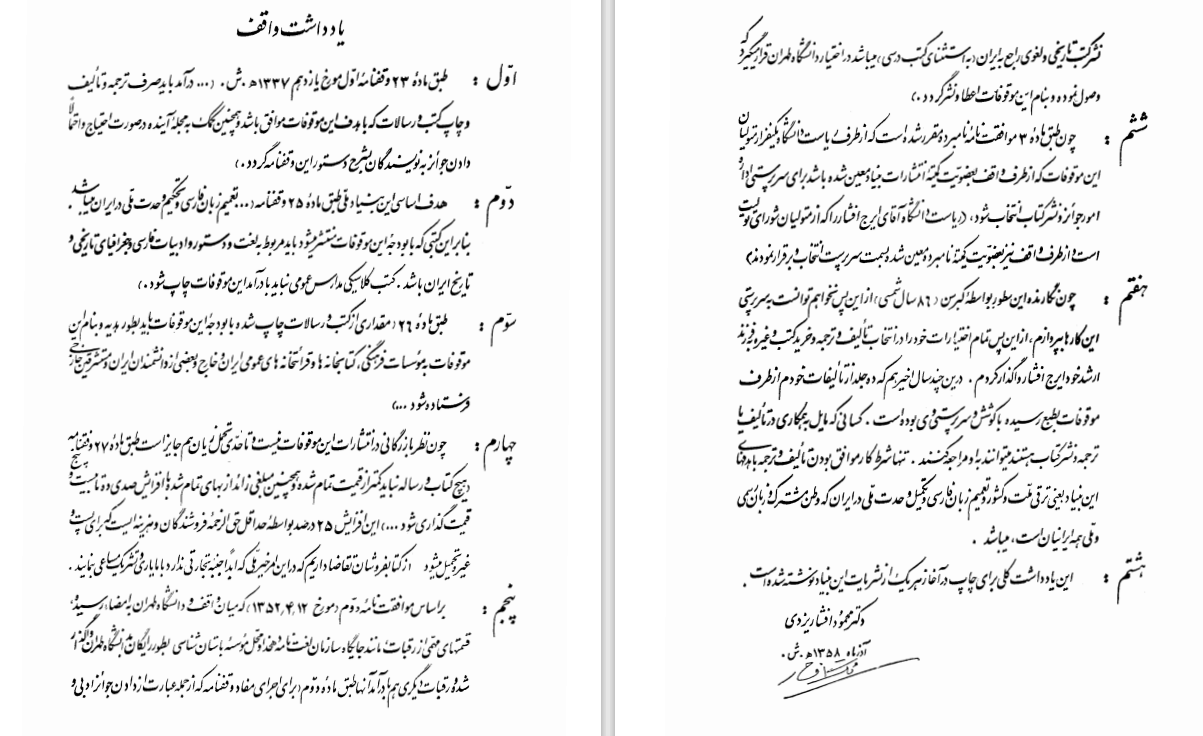 یادداشت واقف
اوّل : طبق مادهٔ ۲۳ وقفنامهٔ اول مورخ یازدهم ۱۳۳۷ ه‍. ش. (... درآمد باید صرف ترجمه و تألیف
و چاپ کتب و رسالات که با هدف این موقوفات موافق باشد و همچنین کمک به مجلهٔ آینده در صورت احتیاج و احتمالاً
دادن جوائز به نویسندگان بشرح دستور این وقفنامه گردد.)
دوّم : هدف اساسی این بنیاد ملی طبق مادهٔ ۲۵ وقفنامه (... تعمیم زبان فارسی و تحکیم وحدت ملی در ایران میباشد.
بنابراین کتبی که با بودجهٔ این موقوفات منتشر میشود باید مربوط به لغت و دستور و ادبیات فارسی و جغرافیای تاریخی و
تاریخ ایران باشد. کتب کلاسیکی مدارس عمومی نباید با درآمد این موقوفات چاپ شود.)
سوّم : طبق مادهٔ ۲۶ (مقداری از کتب و رسالات چاپ شده با بودجهٔ این موقوفات باید بطور هدیه و بنام این
موقوفات به مؤسسات فرهنگی، کتابخانه‌ها و قرائتخانه‌های عمومی ایران و خارج و بعضی از دانشمندان ایران و مستشرقین خارجی
فرستاده شود ...)
چهارم : چون نظر بازرگانی در انتشارات این موقوفات نیست و تا حدی تحمل زیان هم جایز است طبق مادهٔ ۲۷ وقفنامه
(هیچ کتاب و رساله نباید کمتر از قیمت تمام شده و همچنین مبلغی زائد از بهای تمام شده با افزایش صدی ده تا صدی بیست و پنج
قیمت‌گذاری شود ...) این افزایش ۲۵ درصد بواسطهٔ حداقل حق‌الزحمهٔ فروشندگان و هزینه‌ایست که برای پست و
غیره تحمیل میشود از کتابفروشان تقاضا داریم که در این امر خیر ملی که ابداً جنبهٔ تجارتی ندارد با ما یاری و تشریک مساعی بنمایند.
پنجم : بر اساس موافقت‌نامهٔ دوم (مورخ ۱۳۵۲٫۴٫۱۲) که میان واقف و دانشگاه طهران به امضاء رسید و،
قسمتهای مهمی از رقبات، مانند جایگاه سازمان لغت‌نامهٔ دهخدا و محل مؤسسهٔ باستان‌شناسی بطور رایگان به دانشگاه طهران واگذار
شد و رقبات دیگری هم با درآمد آنها طبق مادهٔ دوم (برای اجرای مفاد وقفنامه که از جمله عبارت از دادن جوائز ادبی و
نشر کتب تاریخی و لغوی راجع به ایران (به استثنای کتب درسی) میباشد در اختیار دانشگاه طهران قرار گیرد که
وصول نموده و بنام این موقوفات اعطا و نشر گردد.)
ششم : چون طبق مادهٔ ۳ موافقت‌نامهٔ نامبرده مقرر شده است که از طرف ریاست دانشگاه یکنفر از متولیان
این موقوفات که از طرف واقف بعضویت کمیتهٔ انتشارات بنیاد معین شده باشد برای سرپرستی ادارهٔ
امور جوائز و نشر کتاب انتخاب شود، (ریاست دانشگاه آقای ایرج افشار را که از متولیان شورای تولیت
است و از طرف واقف نیز بعضویت کمیتهٔ نامبرده معین شده بسمت سرپرست انتخاب و برقرار نمودند)
هفتم : چون نگارنده این سطور بواسطهٔ کبر سن (۸۶ سال شمسی) از این پس نخواهم توانست به سرپرستی
این کارها بپردازم، از این پس تمام اختیارات خود را در انتخاب تألیف و ترجمه و خرید کتب و غیره به فرزند
ارشد خود ایرج افشار واگذار کردم. در این چند سال اخیر هم که ده جلد از تألیفات خودم از طرف
موقوفات بطبع رسیده با کوشش و سرپرستی وی بوده است. کسانی که مایل به همکاری در تألیف یا
ترجمه و نشر کتاب هستند میتوانند به او مراجعه کنند. تنها شرط کار موافق بودن تألیف و ترجمه با هدفهای
این بنیاد یعنی ترقی ملت و کشور و تعمیم زبان فارسی و تکمیل وحدت ملی در ایران که وطن مشترک و زبان رسمی
و ملی همهٔ ایرانیان است، میباشد.
هشتم : این یادداشت کلی برای چاپ در آغاز هر یک از نشریات این بنیاد نوشته شده است.
دکتر محمود افشار یزدی
آذرماه ۱۳۵۸ ه‍. ش.